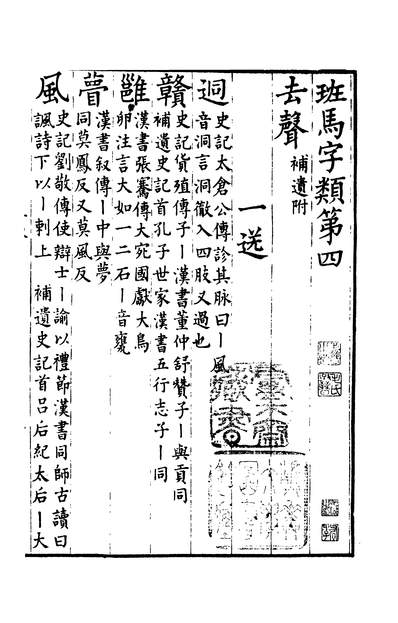 班馬字類第四
去聲 補遺附
一送
迵 史記太倉公傳診其脉曰丨風
音洞言洞徹入四肢又過也
贛 史記貨殖傳子丨漢書董仲舒贊子丨與貢同
補遺史記首孔子世家漢書五行志子丨同
雝 漢書張騫傳大宛國獻大鳥
卵注言大如一二石丨音甕
瞢 漢書叙傳丨中與夢
同莫鳳反又莫風反
風 史記劉敬傳使辯士丨諭以禮節漢書同師古讀曰
諷詩下以丨刺上 補遺史記首呂后紀太后丨大